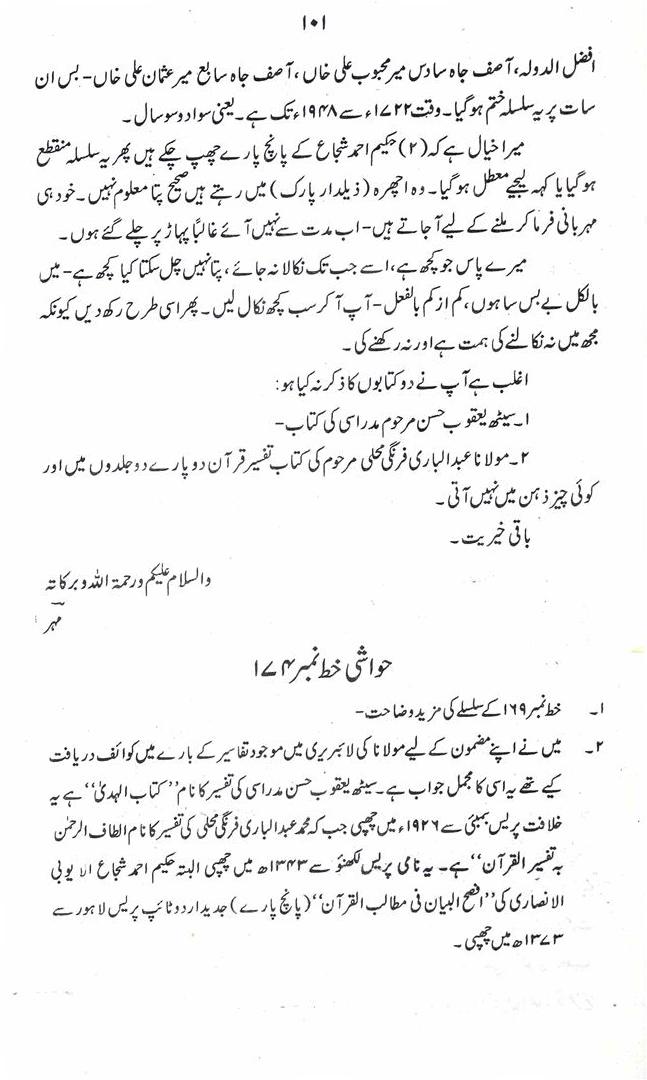 ۱۰۱
افضل الدولہ، آصف جاہ سادس میر محبوب علی خاں، آصف جاہ سابع میر عثمان علی خاں- بس ان
سات پر یہ سلسلہ ختم ہو گیا۔ وقت ۱۷۲۲ء سے ۱۹۴۸ء تک ہے۔ یعنی سوا دو سو سال۔
میرا خیال ہے کہ (۲) حکیم احمد شجاع کے پانچ پارے چھپ چکے ہیں پھر یہ سلسلہ منقطع
ہو گیا یا کہہ لیجیے معطل ہو گیا۔ وہ اچھرہ (ذیلدار پارک) میں رہتے ہیں صحیح پتا معلوم نہیں۔ خود ہی
مہربانی فرما کر ملنے کے لیے آ جاتے ہیں- اب مدت سے نہیں آئے غالباً پہاڑ پر چلے گئے ہوں۔
میرے پاس جو کچھ ہے، اسے جب تک نکالا نہ جائے، پتا نہیں چل سکتا کیا کچھ ہے- میں
بالکل بے بس سا ہوں، کم از کم بالفعل- آپ آ کر سب کچھ نکال لیں۔ پھر اسی طرح رکھ دیں کیونکہ
مجھ میں نہ نکالنے کی ہمت ہے اور نہ رکھنے کی۔
اغلب ہے آپ نے دو کتابوں کا ذکر نہ کیا ہو:
۱۔ سیٹھ یعقوب حسن مرحوم مدراسی کی کتاب-
۲۔ مولانا عبد الباری فرنگی محلی مرحوم کی کتاب تفسیر قرآن دو پارے دو جلدوں میں اور
کوئی چیز ذہن میں نہیں آتی۔
باقی خیریت۔
والسلام علیکم ورحمۃ اللہ وبرکاتہ
مہر
حواشی خط نمبر ۱۷۴
۱۔ خط نمبر ۱۶۹ کے سلسلے کی مزید وضاحت-
۲۔ میں نے اپنے مضمون کے لیے مولانا کی لائبریری میں موجود تفاسیر کے بارے میں کوائف دریافت
کیے تھے یہ اسی کا مجمل جواب ہے۔ سیٹھ یعقوب حسن مدراسی کی تفسیر کا نام ”کتاب الہدیٰ“ ہے یہ
خلافت پریس بمبئی سے ۱۹۲۶ء میں چھپی جب کہ محمد عبد الباری فرنگی محلی کی تفسیر کا نام الطاف الرحمٰن
بہ تفسیر القرآن“ ہے۔ یہ نامی پریس لکھنؤ سے ۱۳۴۳ھ میں چھپی البتہ حکیم احمد شجاع الایوبی
الانصاری کی ”افصح البیان فی مطالب القرآن“ (پانچ پارے) جدید اردو ٹائپ پریس لاہور سے
۱۳۷۳ھ میں چھپی۔